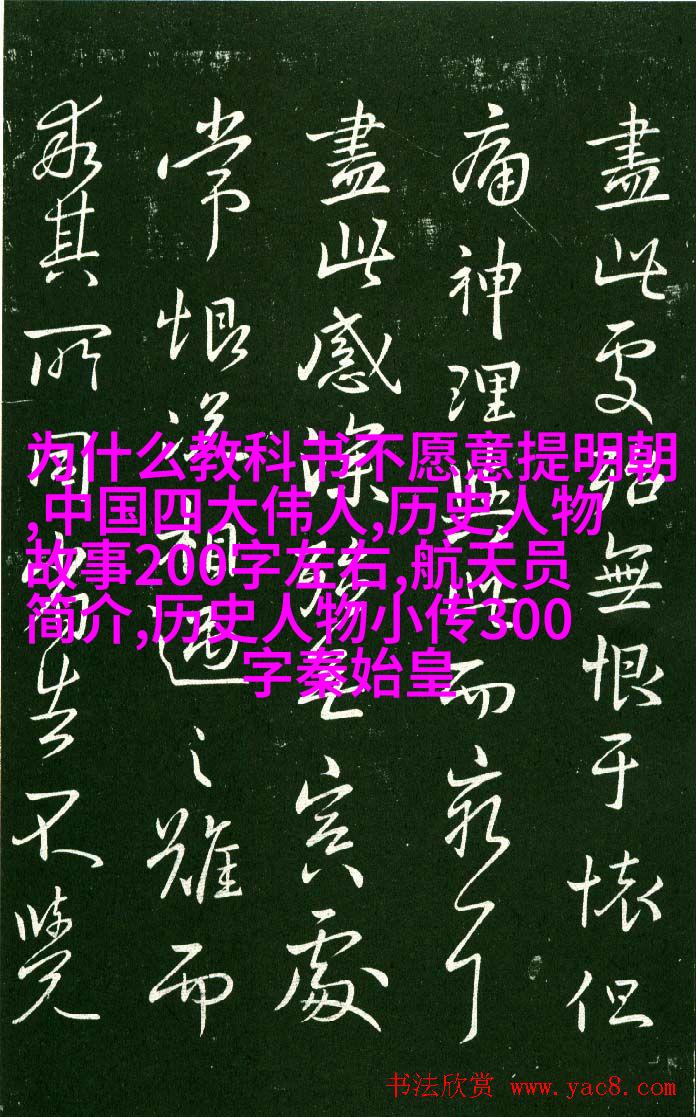 盡此無恨于懷但
痛神理而
盡此感深處
常恨相遇之難而
其所不覺
为什么教科书不愿意提明朝
,中国四大伟人,历史人物
故事200字左右,航天员
简介,历史人物小传300
字秦始皇
书法欣赏 www.yac8.com